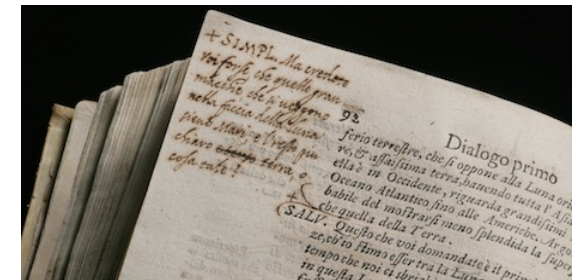 + SIMPL. Ma credete
voi forse che quelle gran
macchie che si veggono
nella faccia della Luna
sieno Mari, e il resto più
chiaro terra, o
cosa tale?
92
Dialogo primo
ferio terrestre, che si oppone alla Luna
re, & assaissima terra, hauendo tutta l'Asia
ella è in Occidente, riguarda grandissimi
Oceano Atlantico sino alle Americhe. Argo
babile del mostrarsi meno splendida la super
che quella della Terra.
+
SALV. Questo che voi domandate è il prim
ze, ch'io stimo esser tra la Luna
tempo che noi ci sbri
in questa L